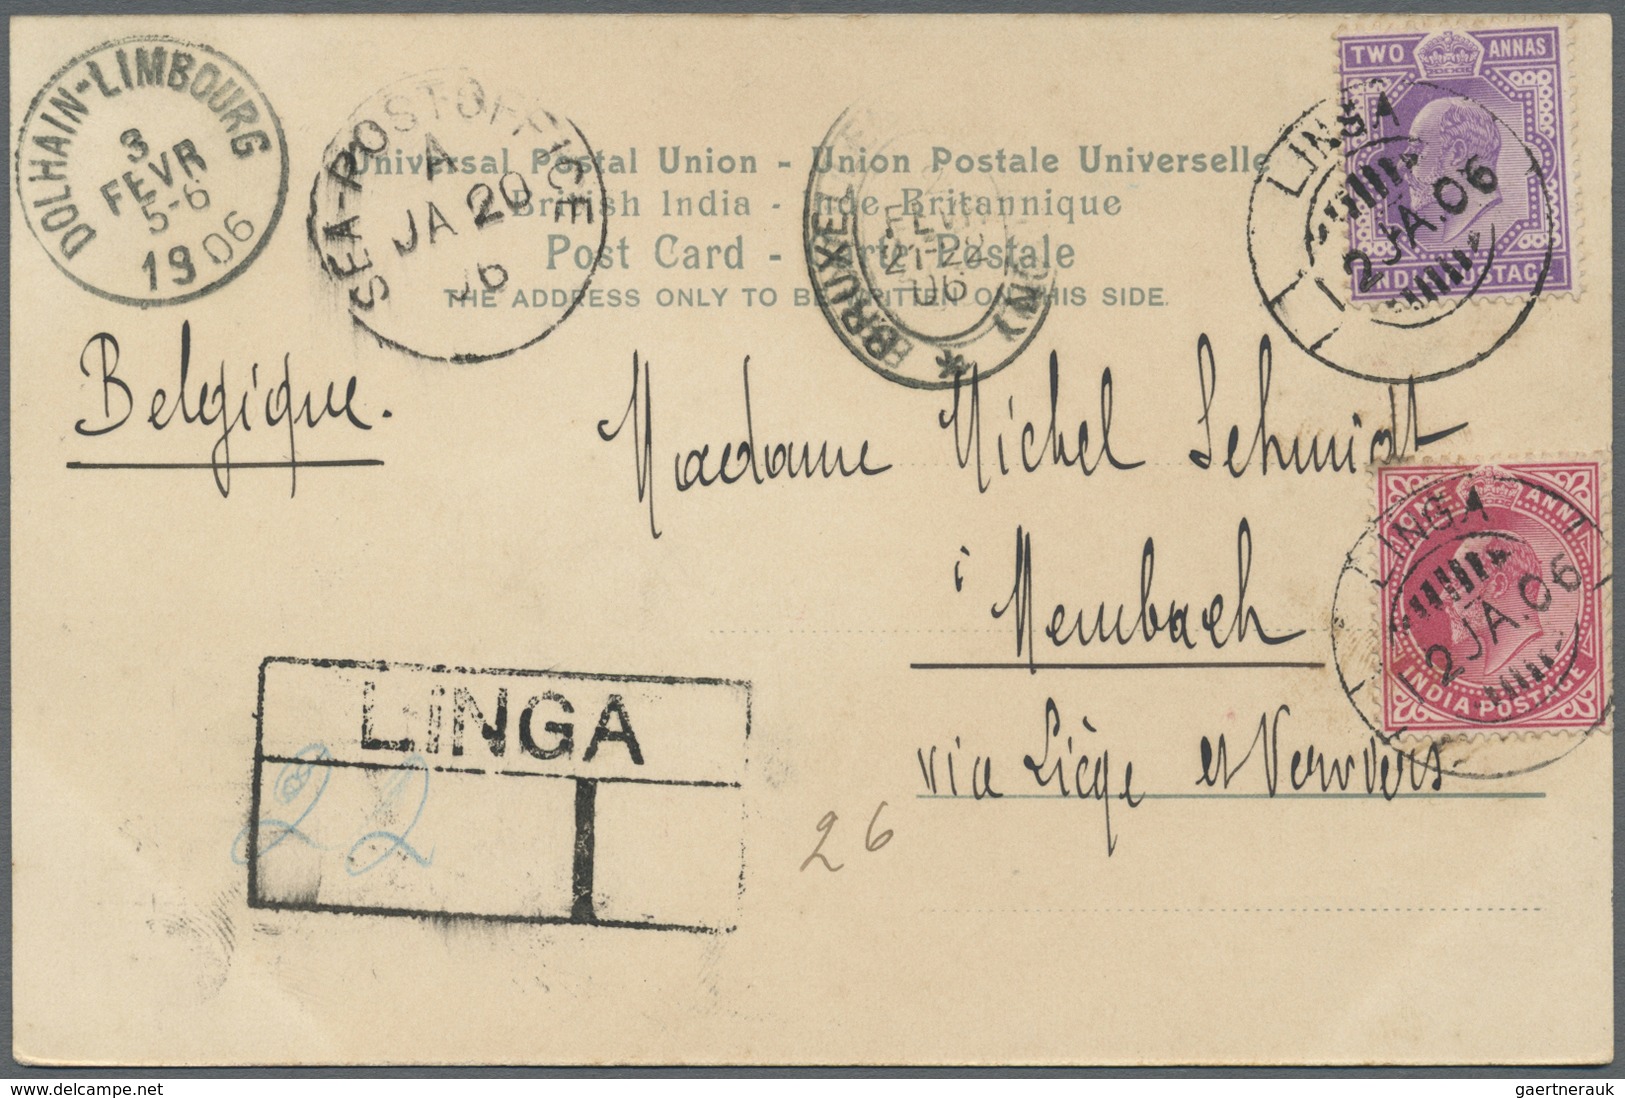 DOLHAIN-LIMBOURG
3
FEVR
5-6
1906
SEA-POST OFFICE
A
JA 20
06
BRUXEL
21-22
06
TWO ANNAS
INDIA POSTAGE
LINGA
2 JA.06
Universal Postal Union - Union Postale Universelle
British India - Inde Britannique
Post Card - Carte Postale
THE ADDRESS ONLY TO BE WRITTEN ON THIS SIDE.
Belgique.
Madame Michel Schmidt
à Membach
via Liège et Verviers
ONE ANNA
INDIA POSTAGE
LINGA
2 JA.06
LINGA
22
26
gaertnerauk